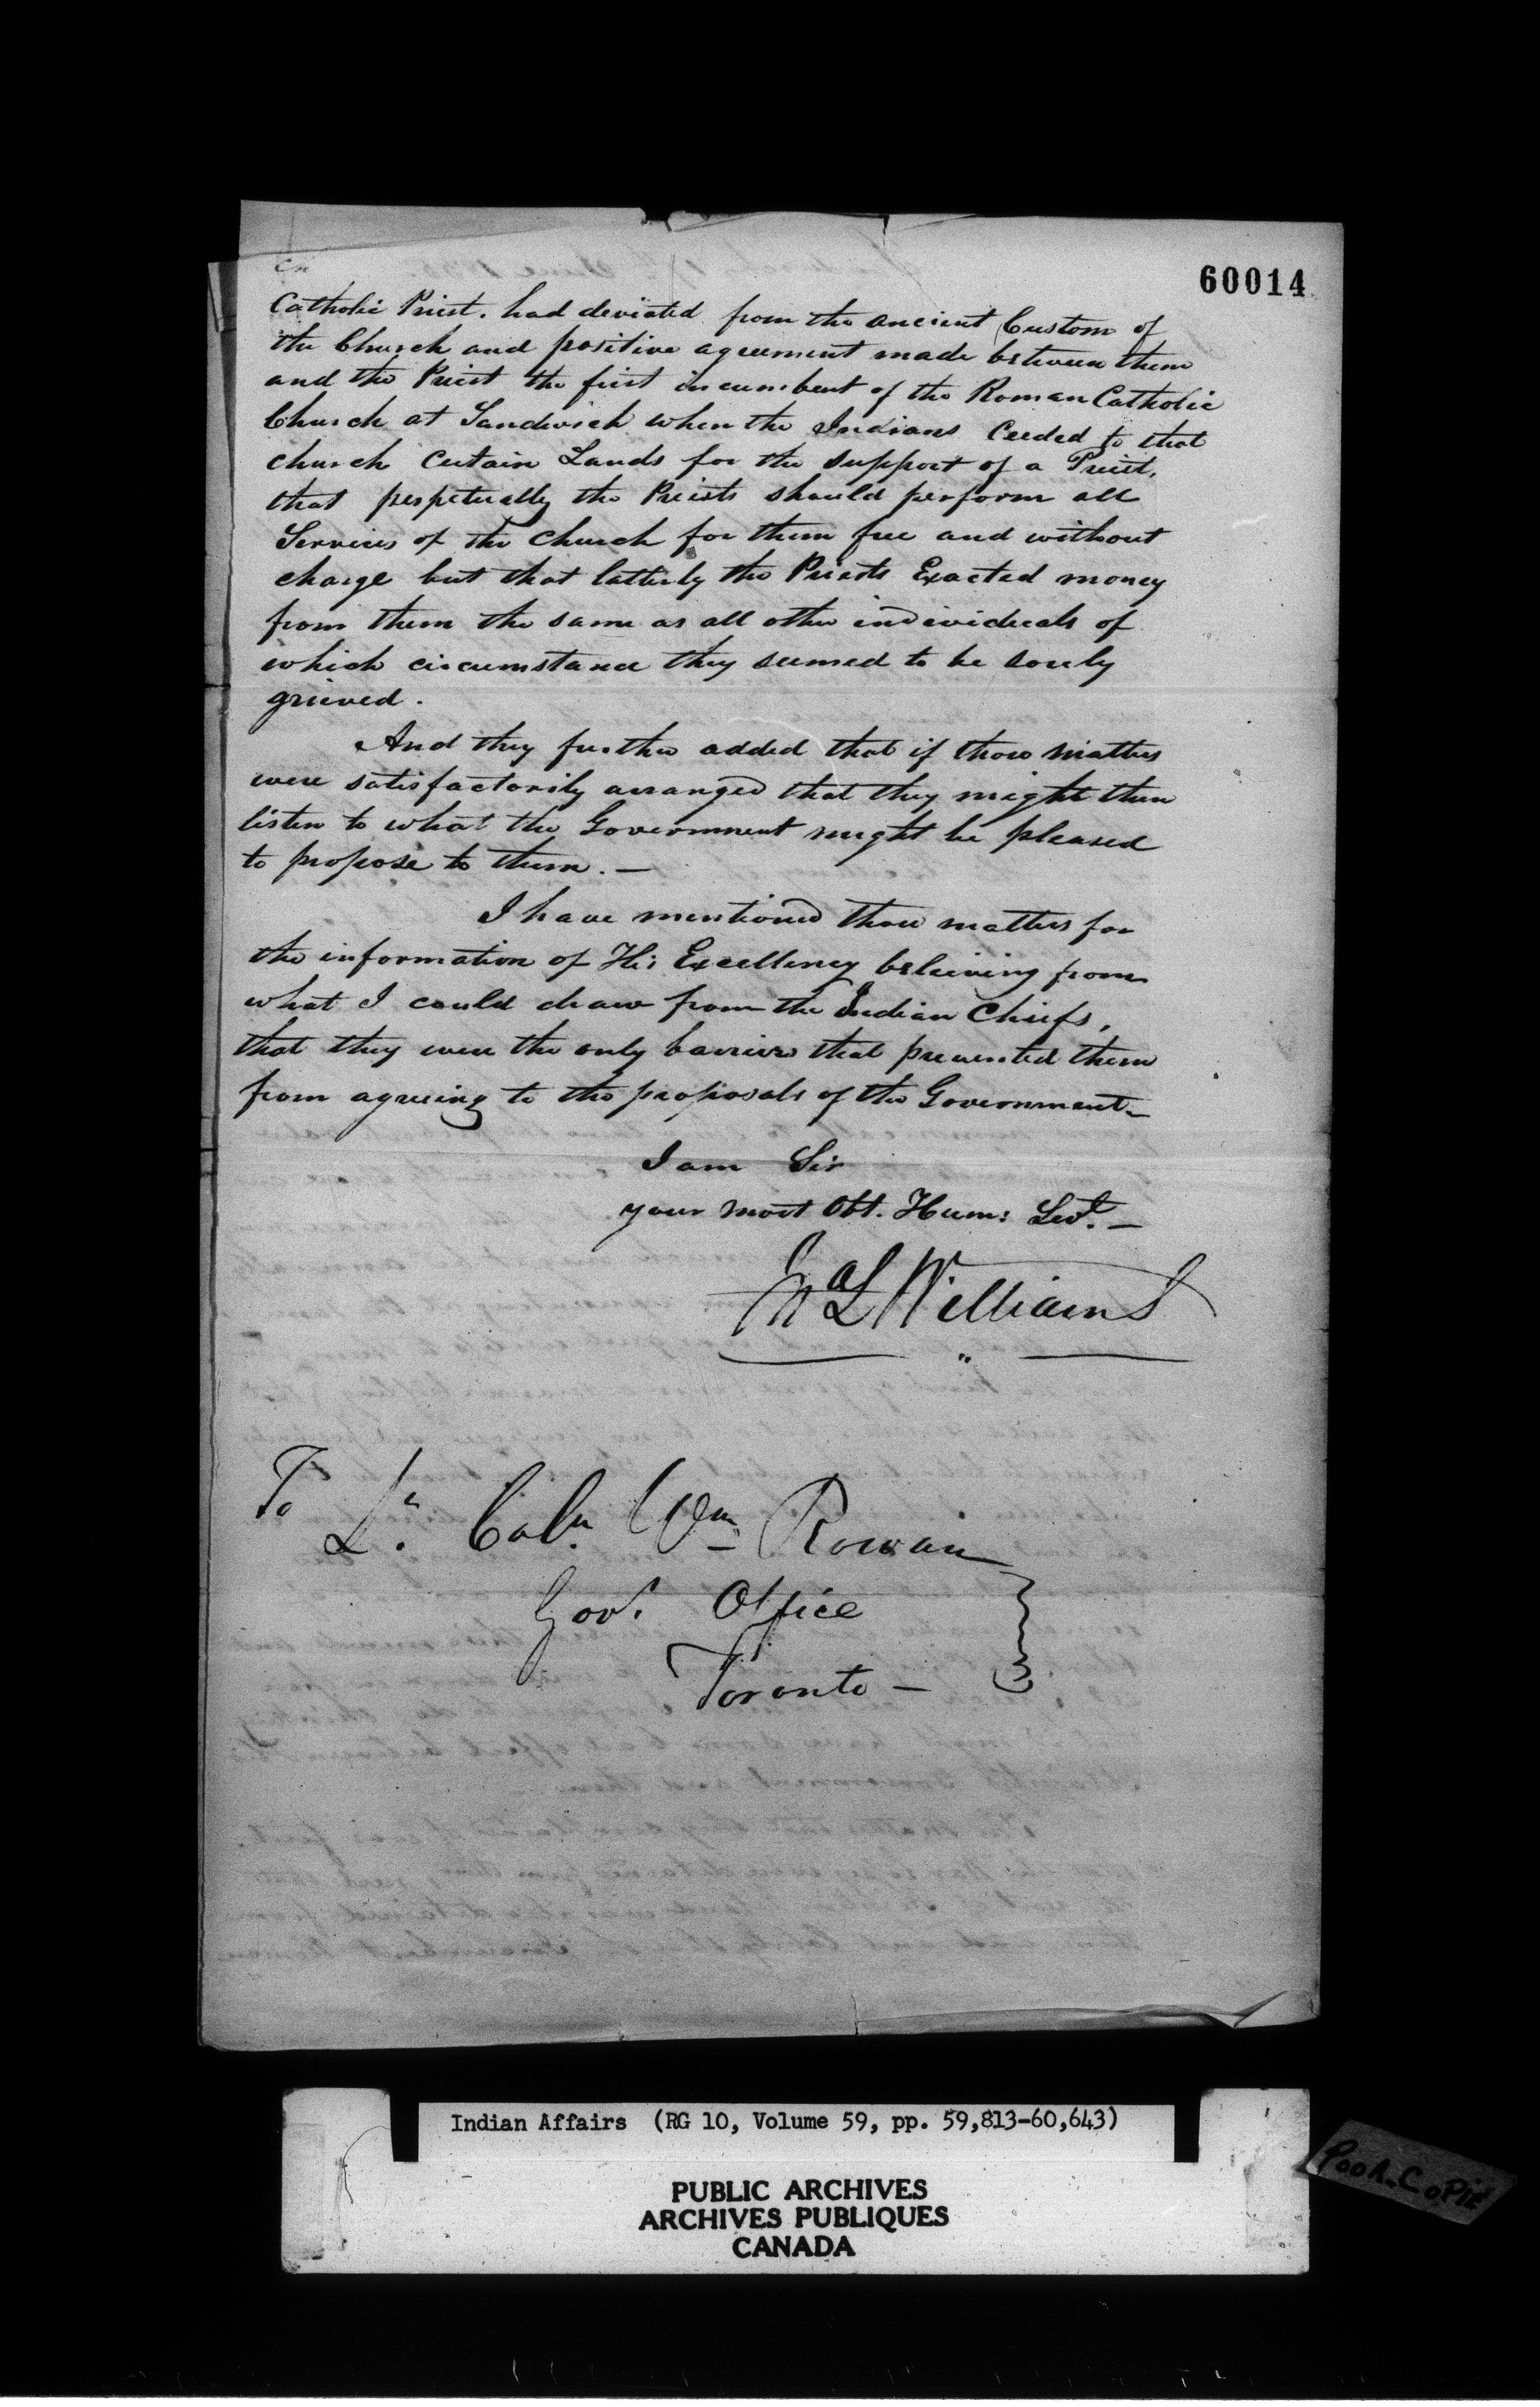 60014
Catholic Priest. had deviated from the ancient Custom of
the Church and positive agreement made between them
and the Priest the first incumbent of the Roman Catholic
Church at Sandwich when the Indians Ceeded to that
church Certain Lands for the support of a Priest,
that perpetually the Priests should perform all
Services of the Church for them free and without
charge but that latterly the Priests Exacted money
from them the same as all other individuals of
which circumstance they seemed to be sorely
grieved.
And they further added that if those matters
were satisfactorily arranged that they might then
listen to what the Government might be pleased
to propose to them. —
I have mentioned those matters for
the information of His Excellency beleiving from
what I could draw from the Indian Chiefs,
that they were the only barriers that prevented them
from agreeing to the proposals of the Government—
I am Sir
your most Obt. Hum: Servt. —
Jno L Williams
To
Lt. Coln. Wm Rowan
Govt. Office
Toronto —
Indian Affairs (RG 10, Volume 59, pp. 59,813-60,643)
PUBLIC ARCHIVES
ARCHIVES PUBLIQUES
CANADA
POOR-COPIE